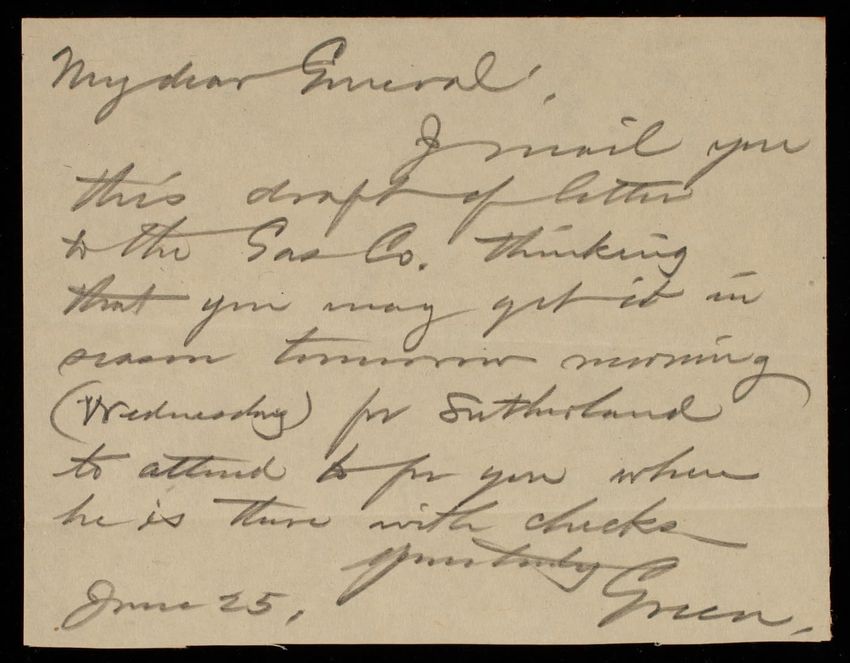 My dear General,
I mail you
this draft of letter
to the Gas Co. thinking
that you may get it in
season tomorrow morning
(Wednesday) for Sutherland
to attend to for you when
he is there with checks
Yours truly
June 25, Green.